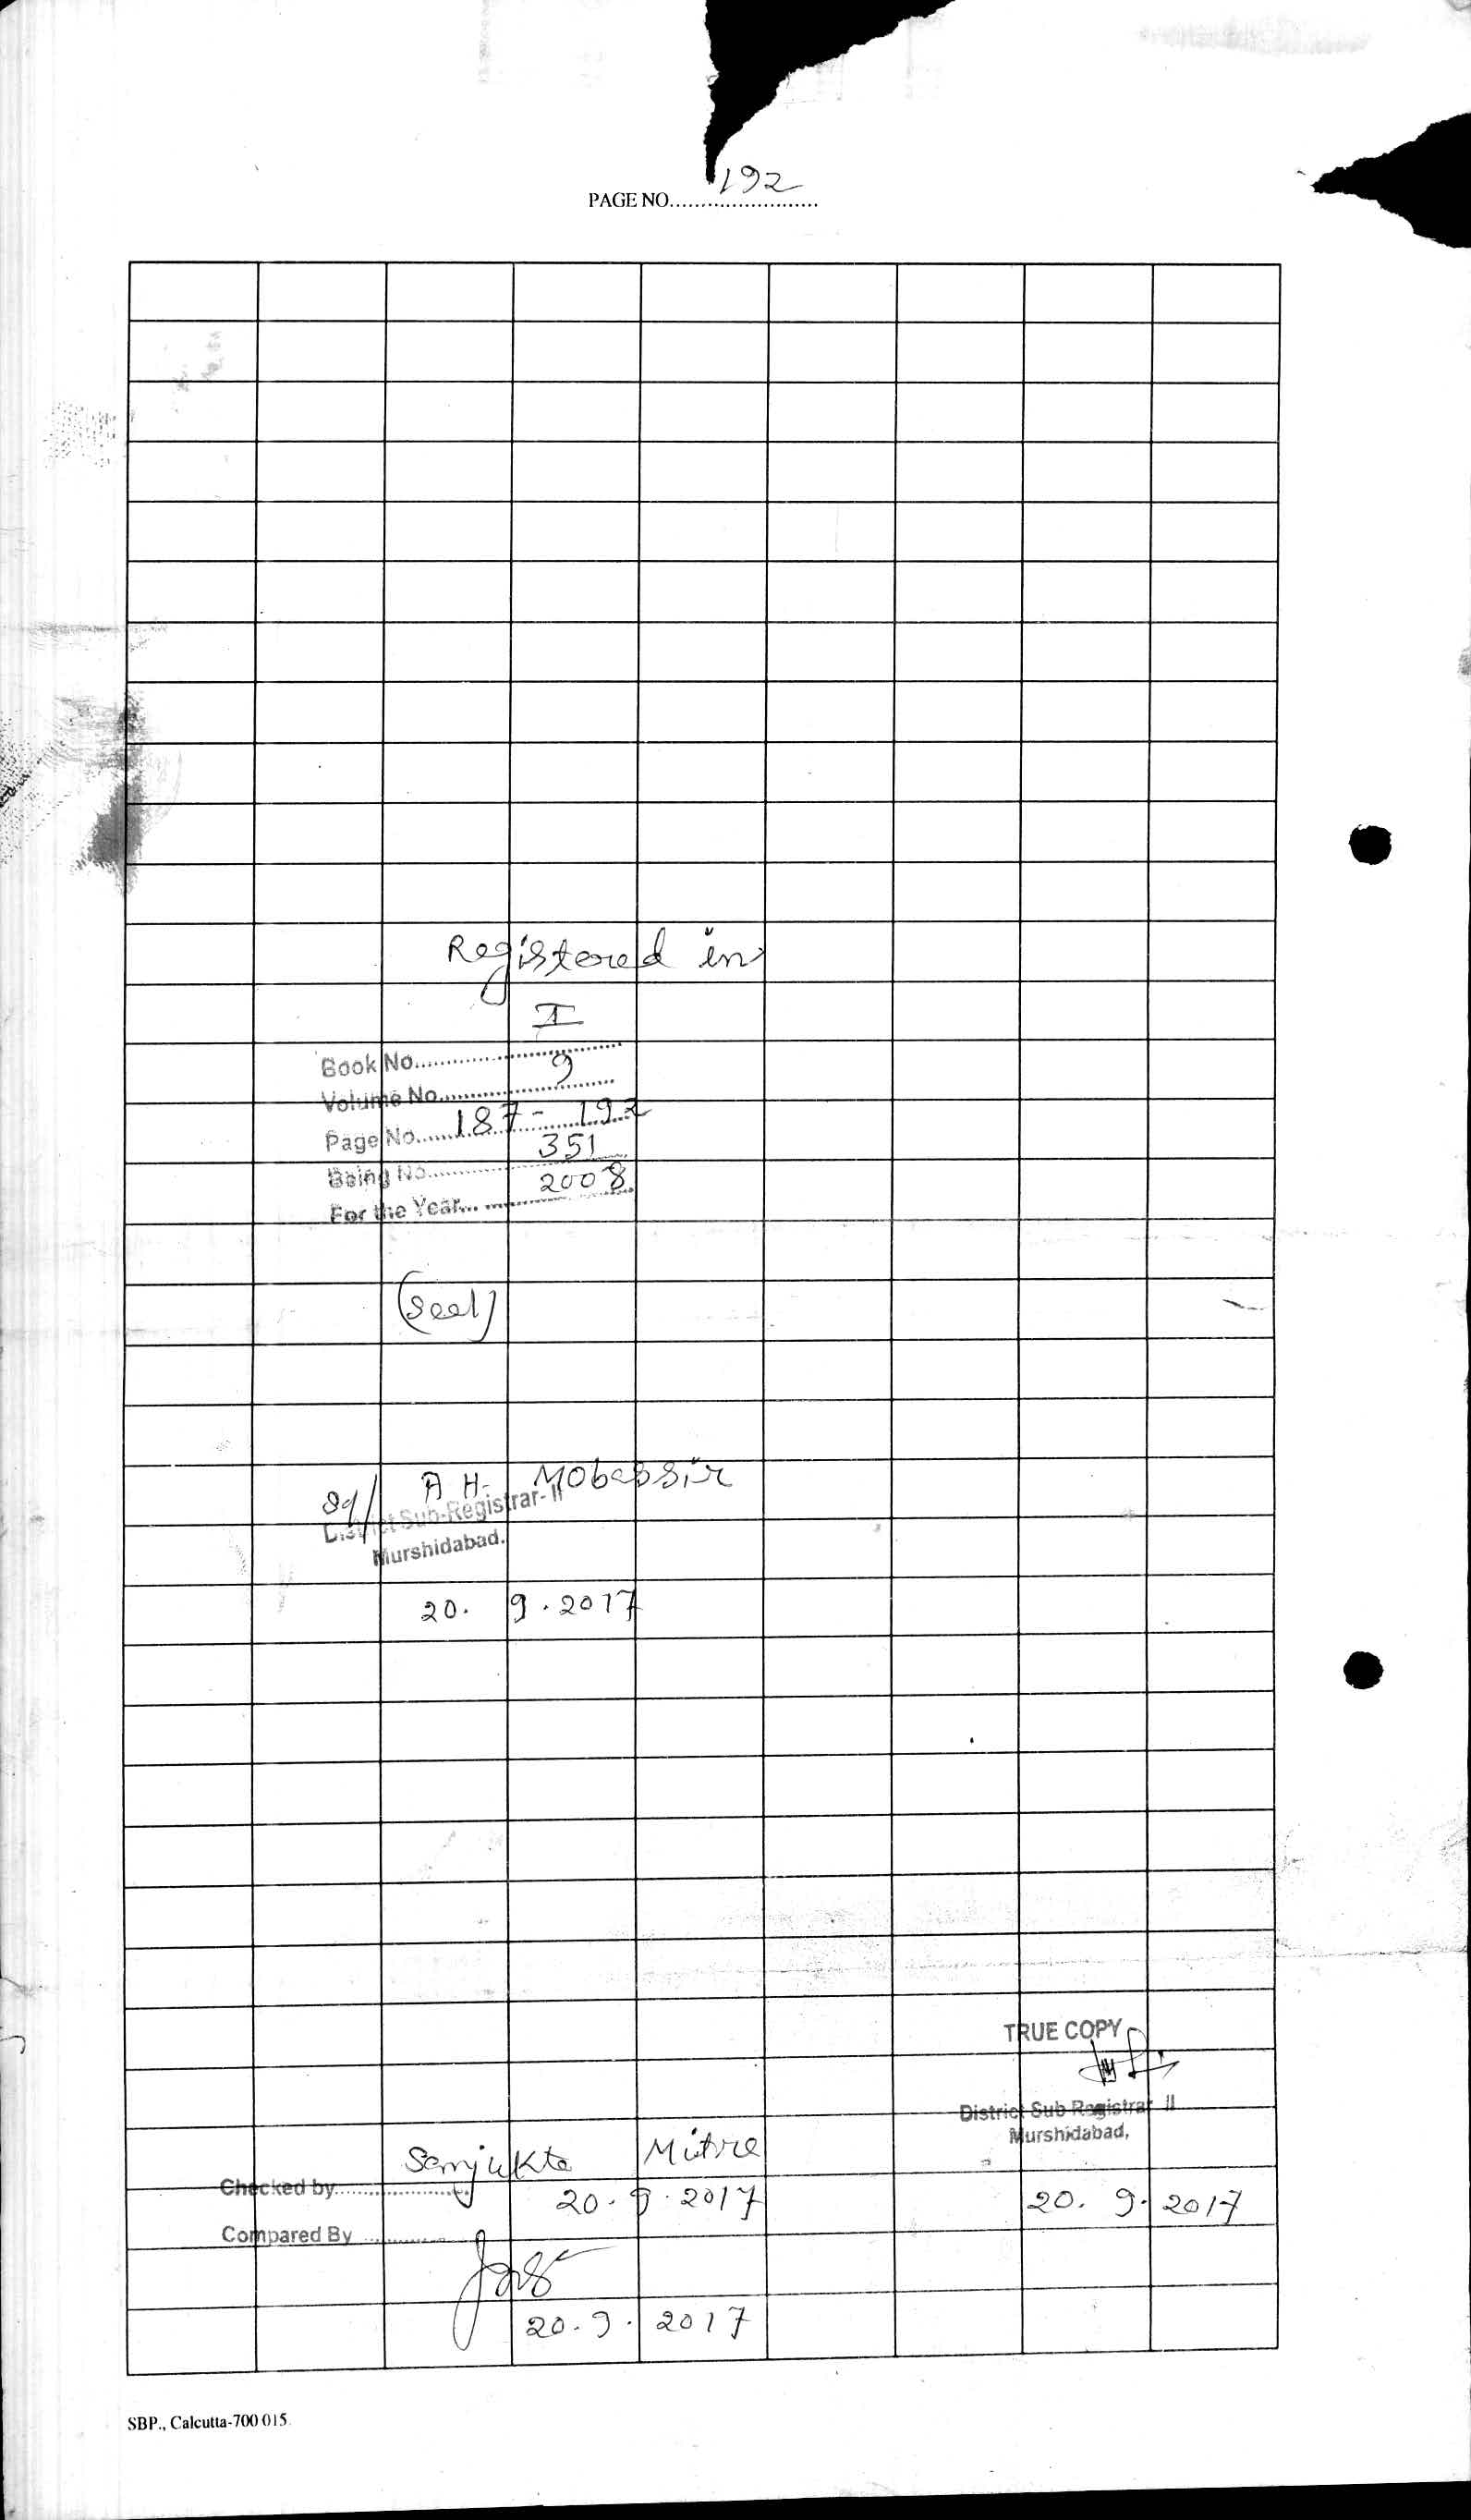 PAGE NO........................192
Registered in
Book No. I
Volume No. 9
Page No. 187 - 192
Being No. 351
For the Year 2008
(Seal)
Sd/ A H. Mobassir
District Sub-Registrar- II
Murshidabad.
20. 9. 2017
TRUE COPY
District Sub Registrar II
Murshidabad,
20. 9. 2017
Checked by Sanjukta Mitra
20. 9. 2017
Compared By
20. 9. 2017
SBP., Calcutta-700 015